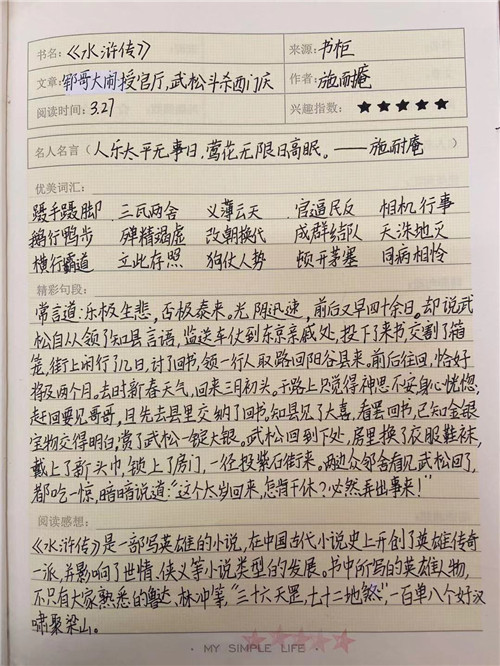 书名：《水浒传》 来源：书柜
文章：郓哥大闹授官厅，武松斗杀西门庆 作者：施耐庵
阅读时间：3.27 兴趣指数：★★★★★
名人名言（人乐太平无事日，莺花无限日高眠。——施耐庵）
优美词汇：
蹑手蹑脚 三瓦两舍 义薄云天 官逼民反 相机行事
鹅行鸭步 殚精竭虑 改朝换代 成群结队 天诛地灭
横行霸道 立此存照 狗仗人势 顿开茅塞 同病相怜
精彩句段：
常言道：乐极生悲，否极泰来。光阴迅速，前后又早四十余日。却说武
松自从领了知县言语，监送车仗到东京亲戚处，投下了来书，交割了箱
笼，街上闲行了几日，讨了回书，领一行人取路回阳谷县来。前后往回，恰好
将及两个月。去时新春天气，回来三月初头。于路上只觉得神思不安，身心恍惚，
赶回要见哥哥，且先去县里交纳了回书。知县见了大喜，看罢回书，已知金银
宝物交得明白，赏了武松一锭大银。武松回到下处，房里换了衣服鞋袜，
戴上了新头巾，锁上了房门，一径投紫石街来。两边众邻舍看见武松回了，
都吃一惊，暗暗说道："这个太岁回来，怎肯干休？必然弄出事来！"
阅读感想：
《水浒传》是一部写英雄的小说，在中国古代小说史上开创了英雄传奇
一派，并影响了世情、侠义等小说类型的发展。书中所写的英雄人物，
不只有大家熟悉的鲁达、林冲等，"三十六天罡，七十二地煞"，一百单八个好汉
啸聚梁山。
· MY SIMPLE LIFE ·